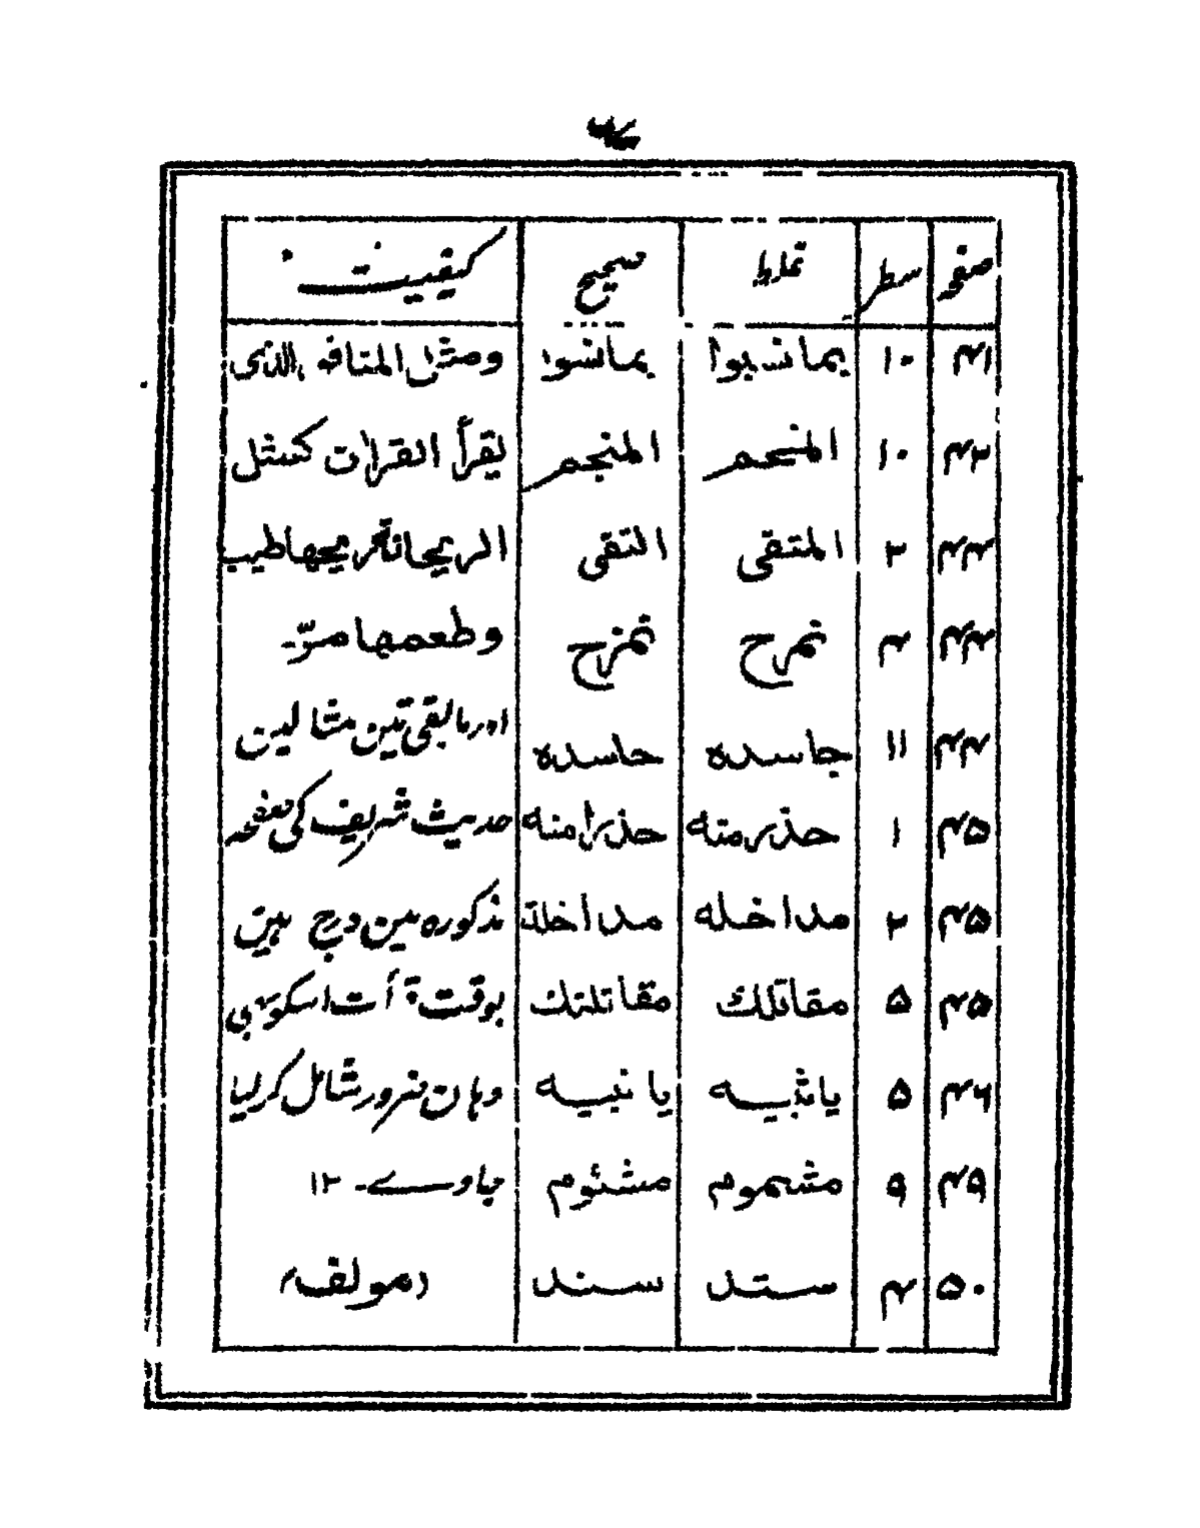 صفحہ سطر غلط صحیح کیفیت
۴۱ ۱۰ بمانسبوا بمانسوا ومثل المنافق الذی
۴۳ ۱۰ المنحم المنجم یقرأ القراٰن کمثل
۴۴ ۲ المتقی التقی الریحانة ریحها طیب
۴۴ ۴ تمرح تمزح وطعمها مرّ۔
۴۴ ۱۱ جاسدہ حاسدہ اور مابقی تین مثالین
۴۵ ۱ حذرمنه حذرامنه حدیث شریف کی صفحہ
۴۵ ۲ مداخله مداخلة مذکورہ مین درج ہین
۴۵ ۵ مقاتلك مقاتلتك بوقت قرأت اسکو بھی
۴۶ ۵ یاثبیه یانبیه وہان ضرور شامل کرلیا
۴۹ ۹ مشموم مشئوم جاوے۔ ۱۲
۵۰ ۴ ستد سند (مولف)